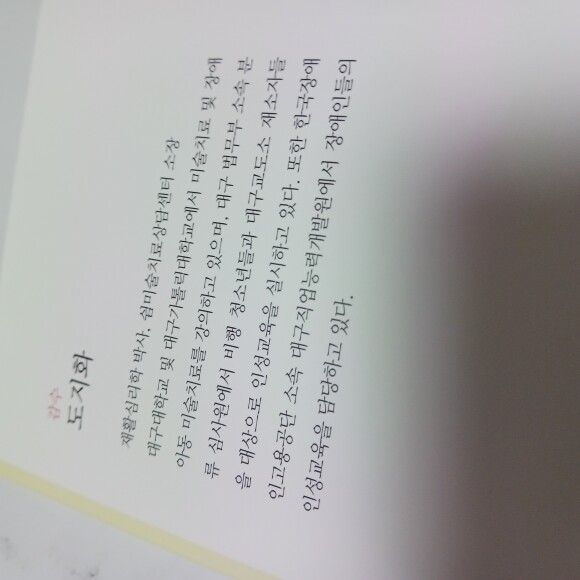 감수
도지화
재활심리학 박사, 쉼미술치료상담센터 소장
대구대학교 및 대구가톨릭대학교에서 미술치료 및 장애
아동 미술치료를 강의하고 있으며, 대구 법무부 소속 분
류 심사원에서 비행 청소년들과 대구교도소 재소자들
을 대상으로 인성교육을 실시하고 있다. 또한 한국장애
인고용공단 소속 대구직업능력개발원에서 장애인들의
인성교육을 담당하고 있다.